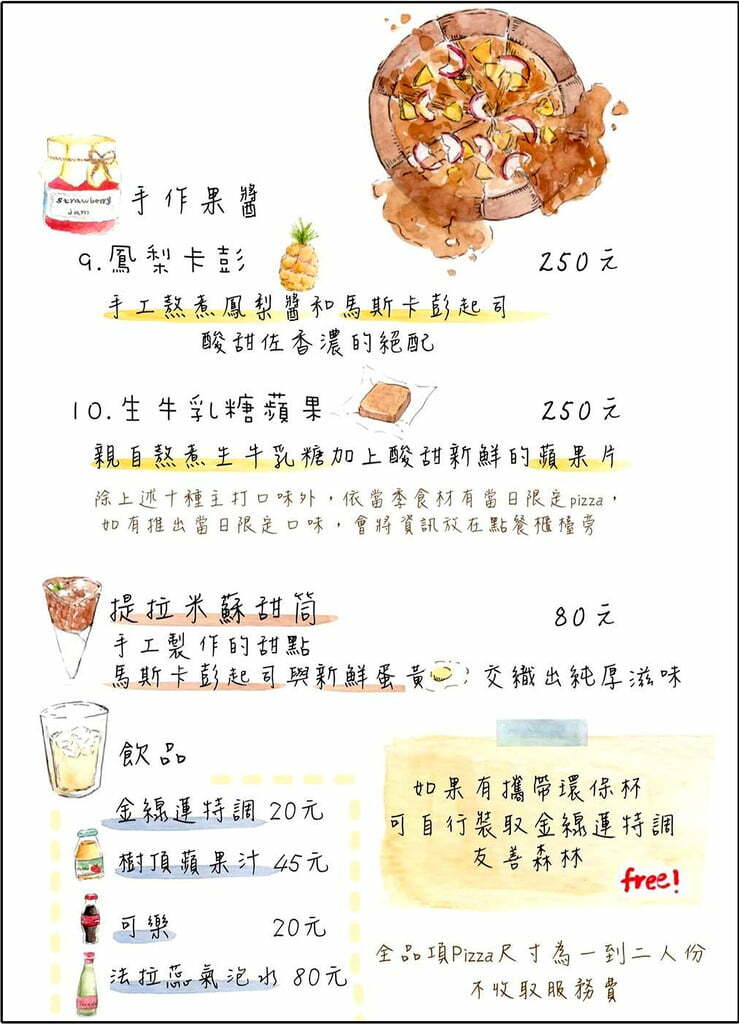 strawberry
Jam
手作果醬
9.鳳梨卡彭
250元
手工熬煮鳳梨醬和馬斯卡彭起司
酸甜佐香濃的絕配
10.生牛乳糖蘋果
250元
親自熬煮生牛乳糖加上酸甜新鮮的蘋果片
除上述十種主打口味外，依當季食材有當日限定pizza，
如有推出當日限定口味，會將資訊放在點餐櫃檯旁
提拉米蘇甜筒
80元
手工製作的甜點
馬斯卡彭起司與新鮮蛋黃 交織出純厚滋味
飲品
金線蓮特調 20元
樹頂蘋果汁 45元
可樂 20元
法拉蕊氣泡水 80元
如果有攜帶環保杯
可自行裝取金線蓮特調
友善森林
free!
全品項Pizza尺寸為一到二人份
不收取服務費